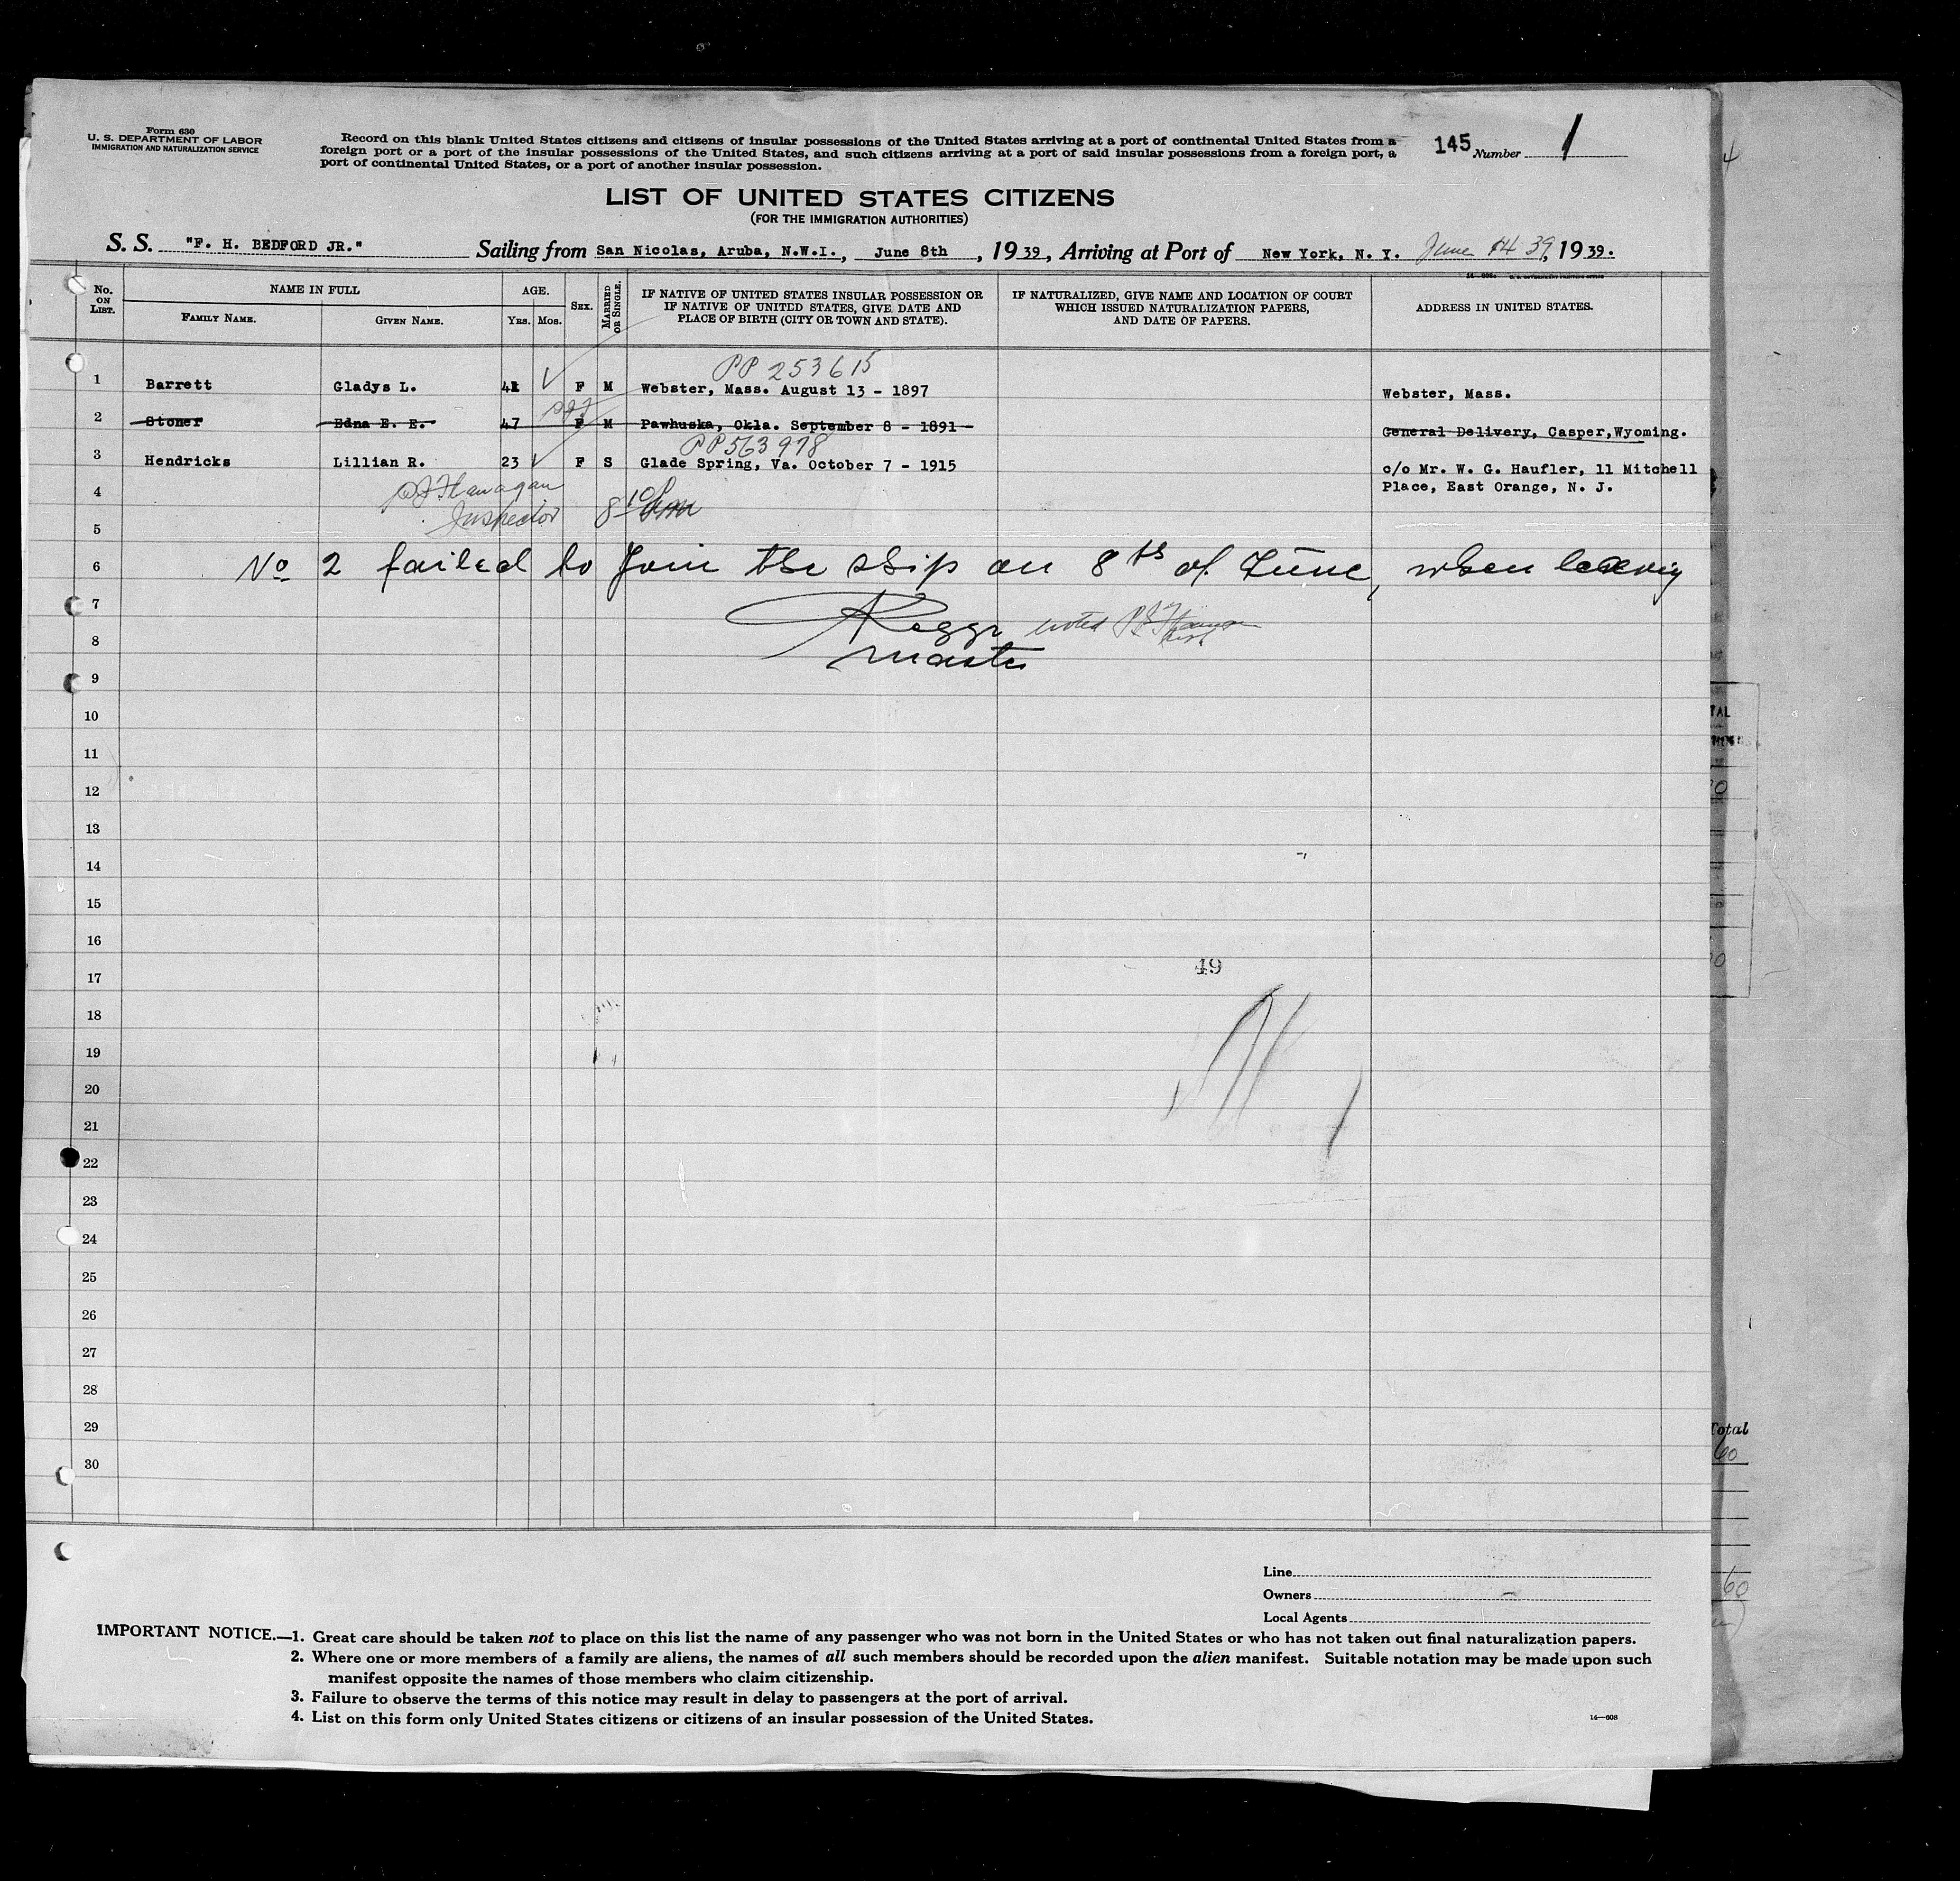 Form 630
U. S. DEPARTMENT OF LABOR
IMMIGRATION AND NATURALIZATION SERVICE
Record on this blank United States citizens and citizens of insular possessions of the United States arriving at a port of continental United States from a
foreign port or a port of the insular possessions of the United States, and such citizens arriving at a port of said insular possessions from a foreign port, a
port of continental United States, or a port of another insular possession.
145 Number 1
LIST OF UNITED STATES CITIZENS
(FOR THE IMMIGRATION AUTHORITIES)
S. S. "F. H. BEDFORD JR." Sailing from San Nicolas, Aruba, N.W.I., June 8th, 1939, Arriving at Port of New York, N. Y. June 14 39, 1939.
No. ON LIST. NAME IN FULL AGE. SEX. MARRIED OR SINGLE. IF NATIVE OF UNITED STATES INSULAR POSSESSION OR IF NATURALIZED, GIVE NAME AND LOCATION OF COURT ADDRESS IN UNITED STATES.
IF NATIVE OF UNITED STATES, GIVE DATE AND WHICH ISSUED NATURALIZATION PAPERS,
FAMILY NAME. GIVEN NAME. YRS. MOS. PLACE OF BIRTH (CITY OR TOWN AND STATE). AND DATE OF PAPERS.
PP 253615
1 Barrett Gladys L. 41 F M Webster, Mass. August 13 - 1897 Webster, Mass.
2 Stoner Edna E. E. 47 F M Pawhuska, Okla. September 8 - 1891 General Delivery, Casper, Wyoming.
PP563978
3 Hendricks Lillian R. 23 F S Glade Spring, Va. October 7 - 1915 c/o Mr. W. G. Haufler, 11 Mitchell
Place, East Orange, N. J.
4 Flanagan
5 Inspector 8 10
6 No 2 failed to join the ship on 8th of June, when leaving
7
noted
8 Master
9
10
11
12
13
14
15
16
17 49
18
19
20
21
22
23
24
25
26
27
28
29
30
Total
60
60
Line
Owners
Local Agents
IMPORTANT NOTICE.—1. Great care should be taken not to place on this list the name of any passenger who was not born in the United States or who has not taken out final naturalization papers.
2. Where one or more members of a family are aliens, the names of all such members should be recorded upon the alien manifest. Suitable notation may be made upon such
manifest opposite the names of those members who claim citizenship.
3. Failure to observe the terms of this notice may result in delay to passengers at the port of arrival.
4. List on this form only United States citizens or citizens of an insular possession of the United States.
14—608